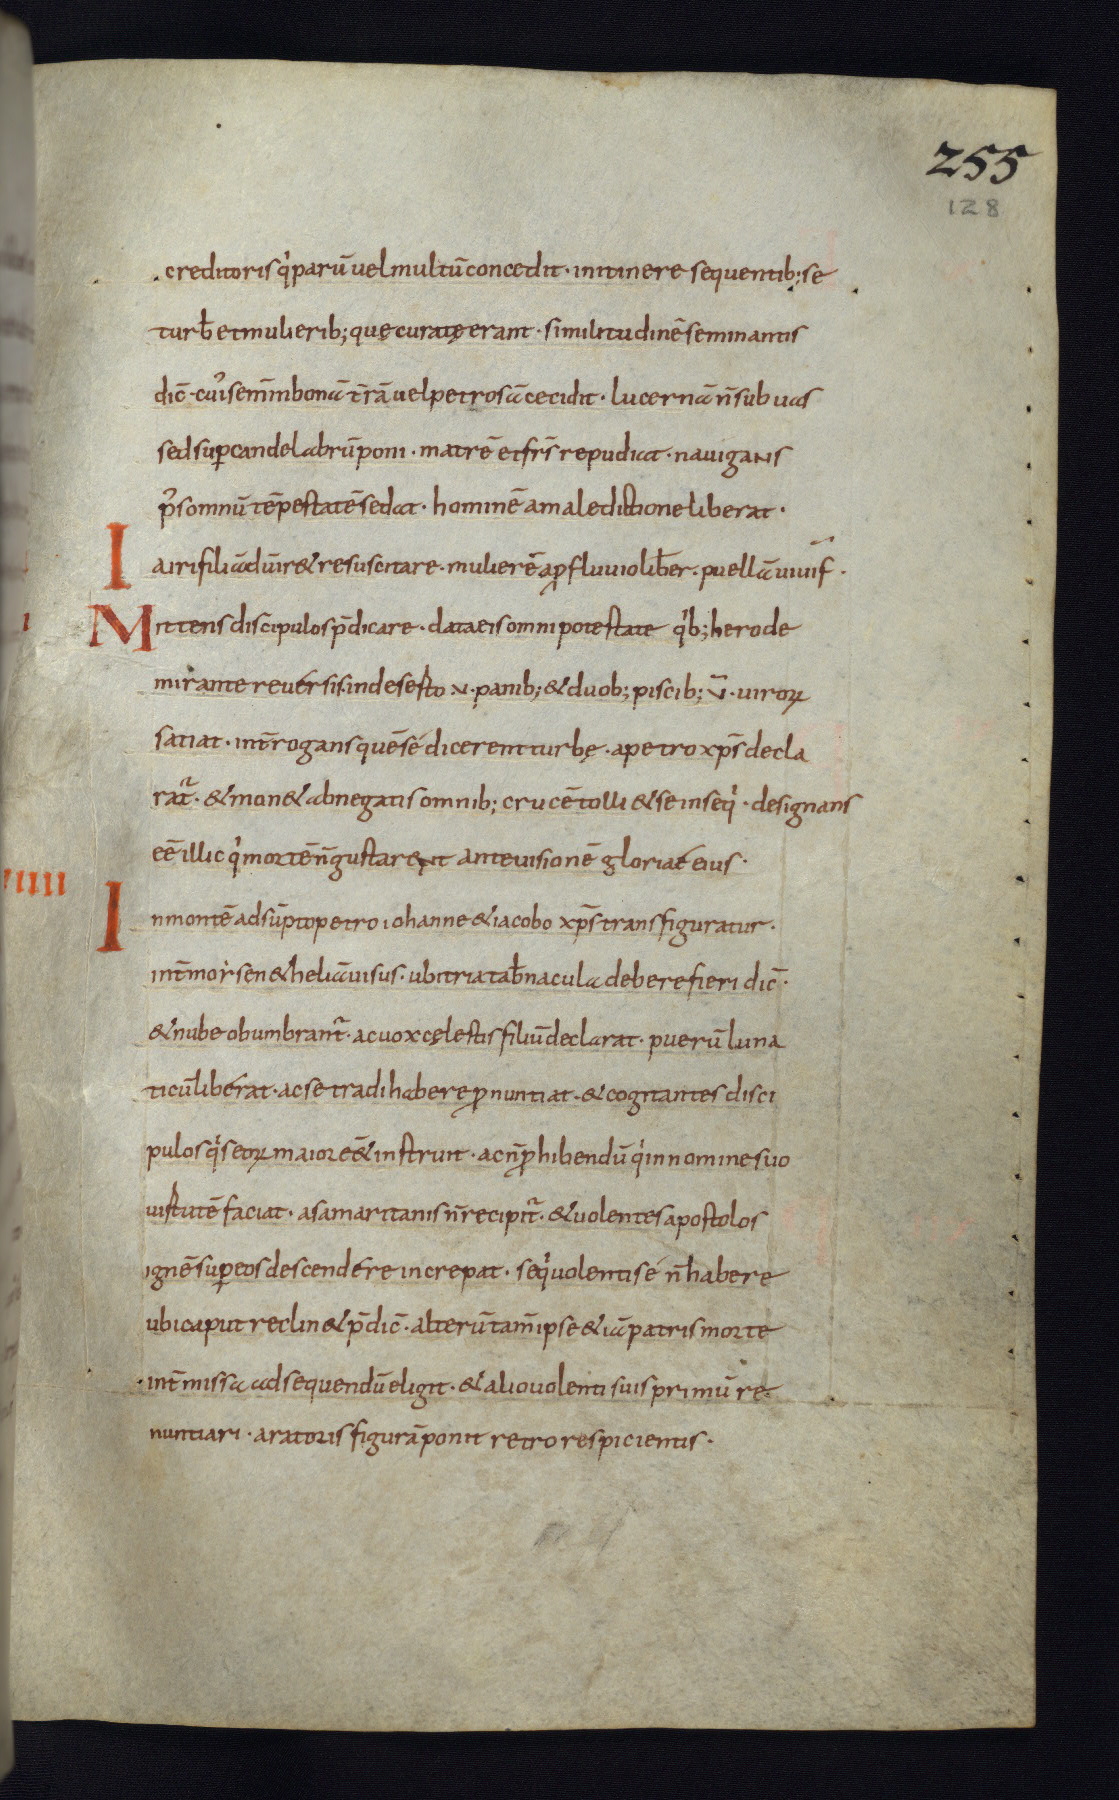 255
128
creditoris q̓ parū uel multū concedit · in itinere sequentib; se
turb̄ et mulierib; quę curatę erant · similitudinē seminantis
dic̄ · cuı᷒ sem̄ in bonā t̄rā uel petrosā cecidit · lucernā n̄ sub uas
sed super candelabrū poni · matrē et frs̄ repudiat · nauigans
p᷒ somnū tēpestatē sedat · hominē a maledictione liberat ·
Iairi filiā dū ir& resuscitare · mulierē a ꝓfluuio lib̄er · puellā uiuif̄ ·
Mittens discipulos p̄dicare · data eis omni potestate q̓b; herode
mirante reuersis in deserto v · panib; & duob; piscib; v̄ · uiroꝝ
satiat · int̄rogans quē se dicerent turbę · a petro xp̄s decla
rat᷑ · & mon& abnegatis omnib; crucē tolli & se inseq̓ · designans
eē illic q̓ mortē n̄ gustarent ante uisionē gloriae eius ·
uiiii
In montē adsūpto petro iohanne & iacobo xp̄s transfiguratur ·
int̄ moysen & heliā uisus · ubi tria tab̄nacula debere fieri dic̄ ·
& nube obumbrant᷑ · ac uox cęlestis filiū declarat · puerū luna
ticū liberat · ac se tradi habere ꝓnuntiat · & cogitantes disci
pulos q̓s eoꝝ maior eēt instruit · ac n̄ ꝓhibendū q̓ in nomine suo
uirtutē faciat · a samaritanis n̄ recipit᷑ · & uolentes apostolos
ignē super eos descendere increpat · seq̓ uolenti se n̄ habere
ubi caput reclin& p̄dic̄ · alterū tam̄ ipse & iā patris morte
int̄missa ad sequendū eligit · & alio uolenti suis primū re
nuntiari · aratoris figurā ponit retro respicientis ·